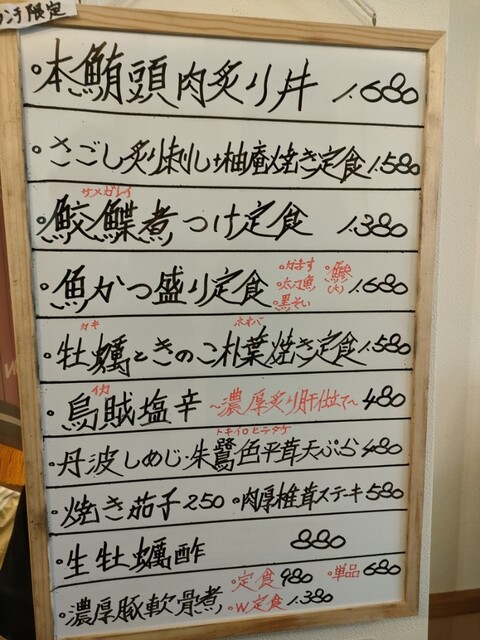 ランチ限定
◦本鮪頭肉炙り丼 1.680
◦さごし炙り刺し+柚庵焼き定食 1.580
サメガレイ
◦鮫鰈煮つけ定食 1.380
◦魚かつ盛り定食 ◦かます ◦太刀魚 ◦黒そい ◦鰺(大) 1.680
カキ ホオバ
◦牡蠣ときのこ朴葉焼き定食 1.580
イカ
◦烏賊塩辛 ~濃厚炙り肝仕立て~ 480
トキイロヒラタケ
◦丹波しめじ・朱鷺色平茸天ぷら 480
◦焼き茄子 250 ◦肉厚椎茸ステーキ 580
◦生牡蠣酢 880
◦濃厚豚軟骨煮 ◦定食 980 ◦単品 680
◦W定食 1.380